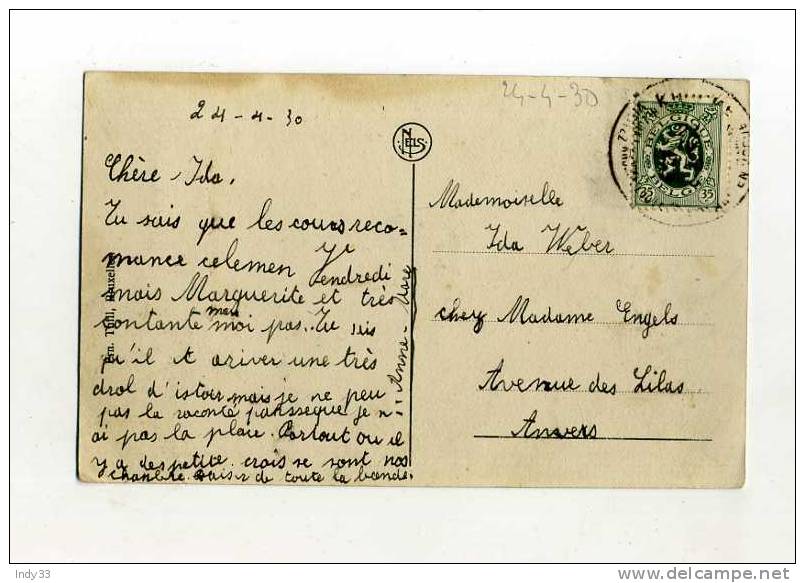 24-4-30
24-4-30
NELS
BELGIQUE
BELGIE
35 35
Chère Ida,
Tu sais que les cours reco-
mance celemen Vendredi
mais Marguerite et très
contante mes moi pas. Tu
qu'il et ariver une très
drol d'istoir mais je ne peu
pas la raconté parsseque je n-
ai pas la plaie. Partout ou il
y a des petite crois se sont nos
chambre. de toute la bande.
Anne-
Mademoiselle
Ida Weber
chez Madame Engels
Avenue des Lilas
Anvers
Thill, Bruxelles
Indy33
http://www.delcampe.net